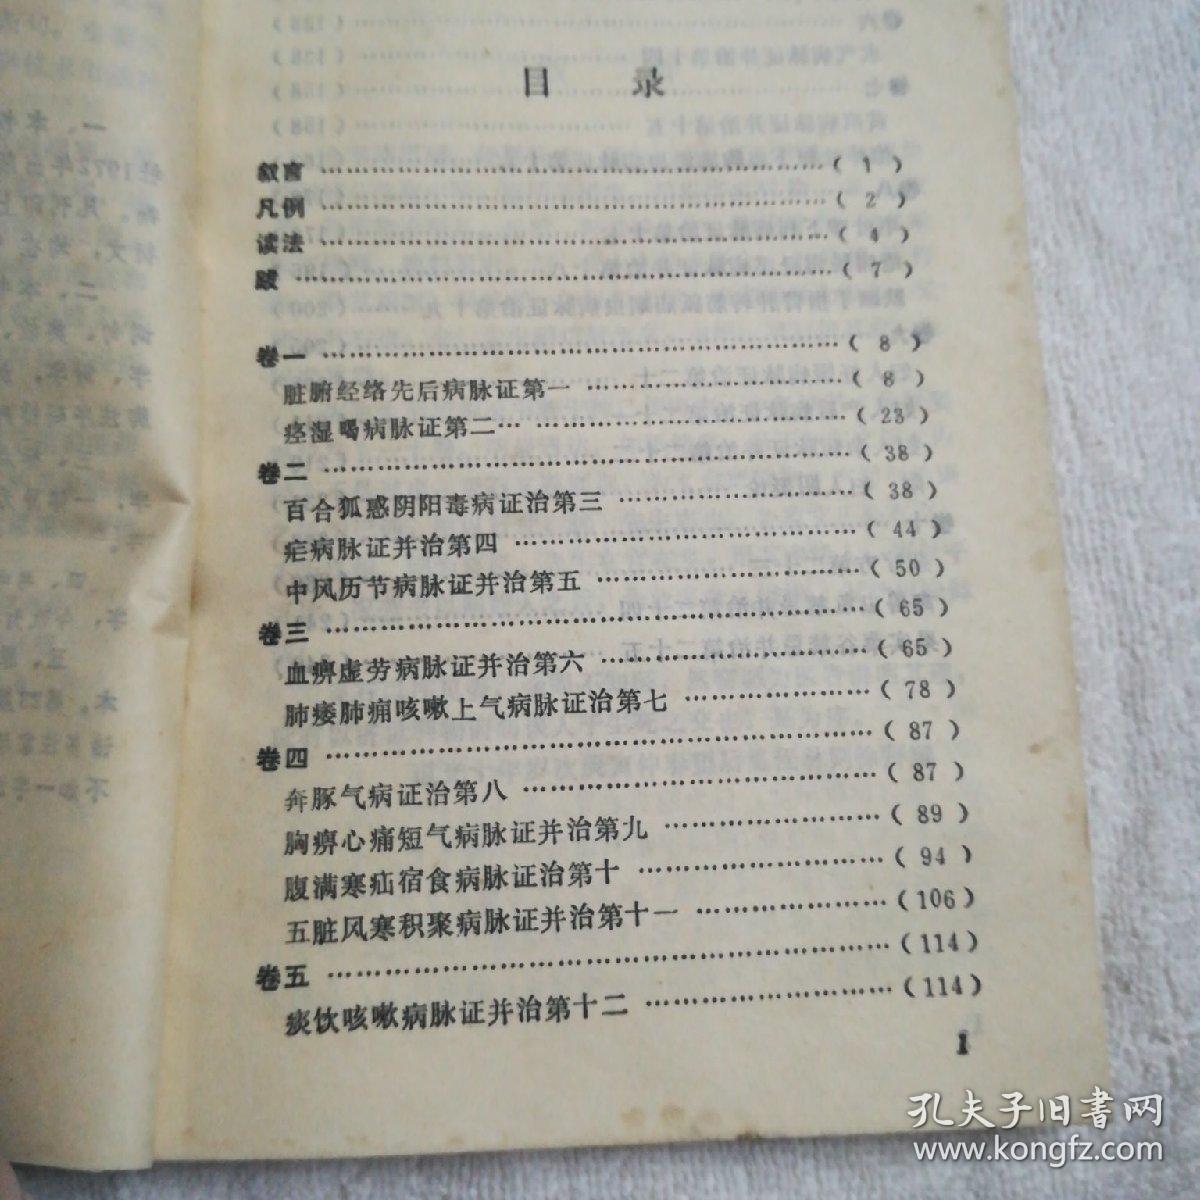 目 录
叙言 ……………………………………………………( 1 )
凡例 ……………………………………………………( 2 )
读法 ……………………………………………………( 4 )
跋 ………………………………………………………( 7 )
卷一 ……………………………………………………( 8 )
脏腑经络先后病脉证第一 ……………………………( 8 )
痉湿暍病脉证第二… …………………………………( 23 )
卷二 ……………………………………………………( 38 )
百合狐惑阴阳毒病证治第三 …………………………( 38 )
疟病脉证并治第四 ……………………………………( 44 )
中风历节病脉证并治第五 ……………………………( 50 )
卷三 ……………………………………………………( 65 )
血痹虚劳病脉证并治第六 ……………………………( 65 )
肺痿肺痈咳嗽上气病脉证治第七 ……………………( 78 )
卷四 ……………………………………………………( 87 )
奔豚气病证治第八 ……………………………………( 87 )
胸痹心痛短气病脉证并治第九 ………………………( 89 )
腹满寒疝宿食病脉证治第十 …………………………( 94 )
五脏风寒积聚病脉证并治第十一 ……………………(106)
卷五 ……………………………………………………(114)
痰饮咳嗽病脉证并治第十二 …………………………(114)
1
一、本
1972年
二、本
四、
五、
不如一
孔夫子旧书网
www.kongfz.com